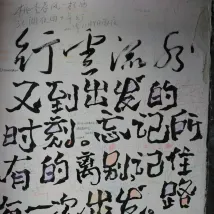 行雲流水
又到出发的
时刻。忘记所
有的离别记住
每一次出发。路